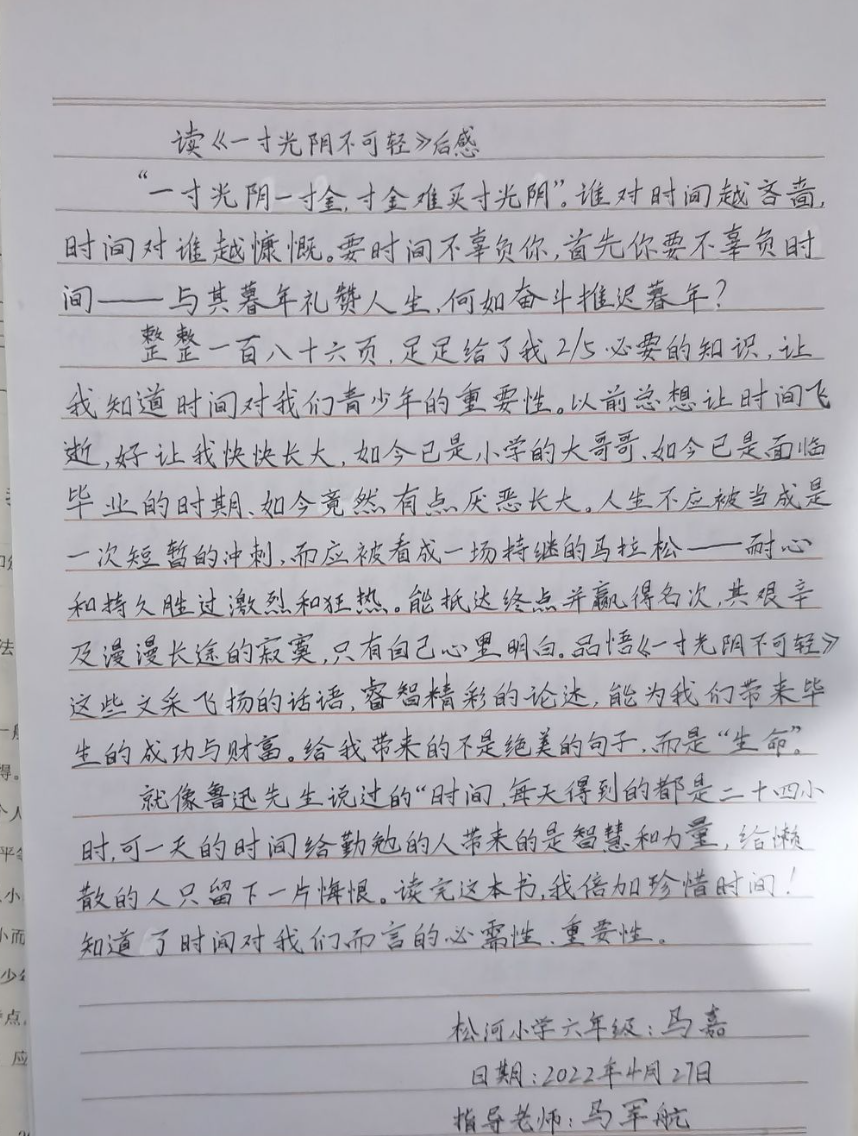 读《一寸光阴不可轻》后感
“一寸光阴一寸金,寸金难买寸光阴”。谁对时间越吝啬,
时间对谁越慷慨。要时间不辜负你,首先你要不辜负时
间——与其暮年礼赞人生,何如奋斗推迟暮年?
整整一百八十六页,足足给了我2/5必要的知识,让
我知道时间对我们青少年的重要性。以前总想让时间飞
逝,好让我快快长大,如今已是小学的大哥哥、如今已是面临
毕业的时期、如今竟然有点厌恶长大。人生不应被当成是
一次短暂的冲刺,而应被看成一场持继的马拉松——耐心
和持久胜过激烈和狂热。能抵达终点并赢得名次,其艰辛
及漫漫长途的寂寞,只有自己心里明白。品悟《一寸光阴不可轻》
这些文采飞扬的话语,睿智精彩的论述,能为我们带来毕
生的成功与财富。给我带来的不是绝美的句子,而是“生命”。
就像鲁迅先生说过的“时间,每天得到的都是二十四小
时,可一天的时间给勤勉的人带来的是智慧和力量,给懒
散的人只留下一片悔恨。读完这本书,我倍加珍惜时间!
知道了时间对我们而言的必需性、重要性。
松河小学六年级:马嘉
日期:2022年4月27日
指导老师:马军航